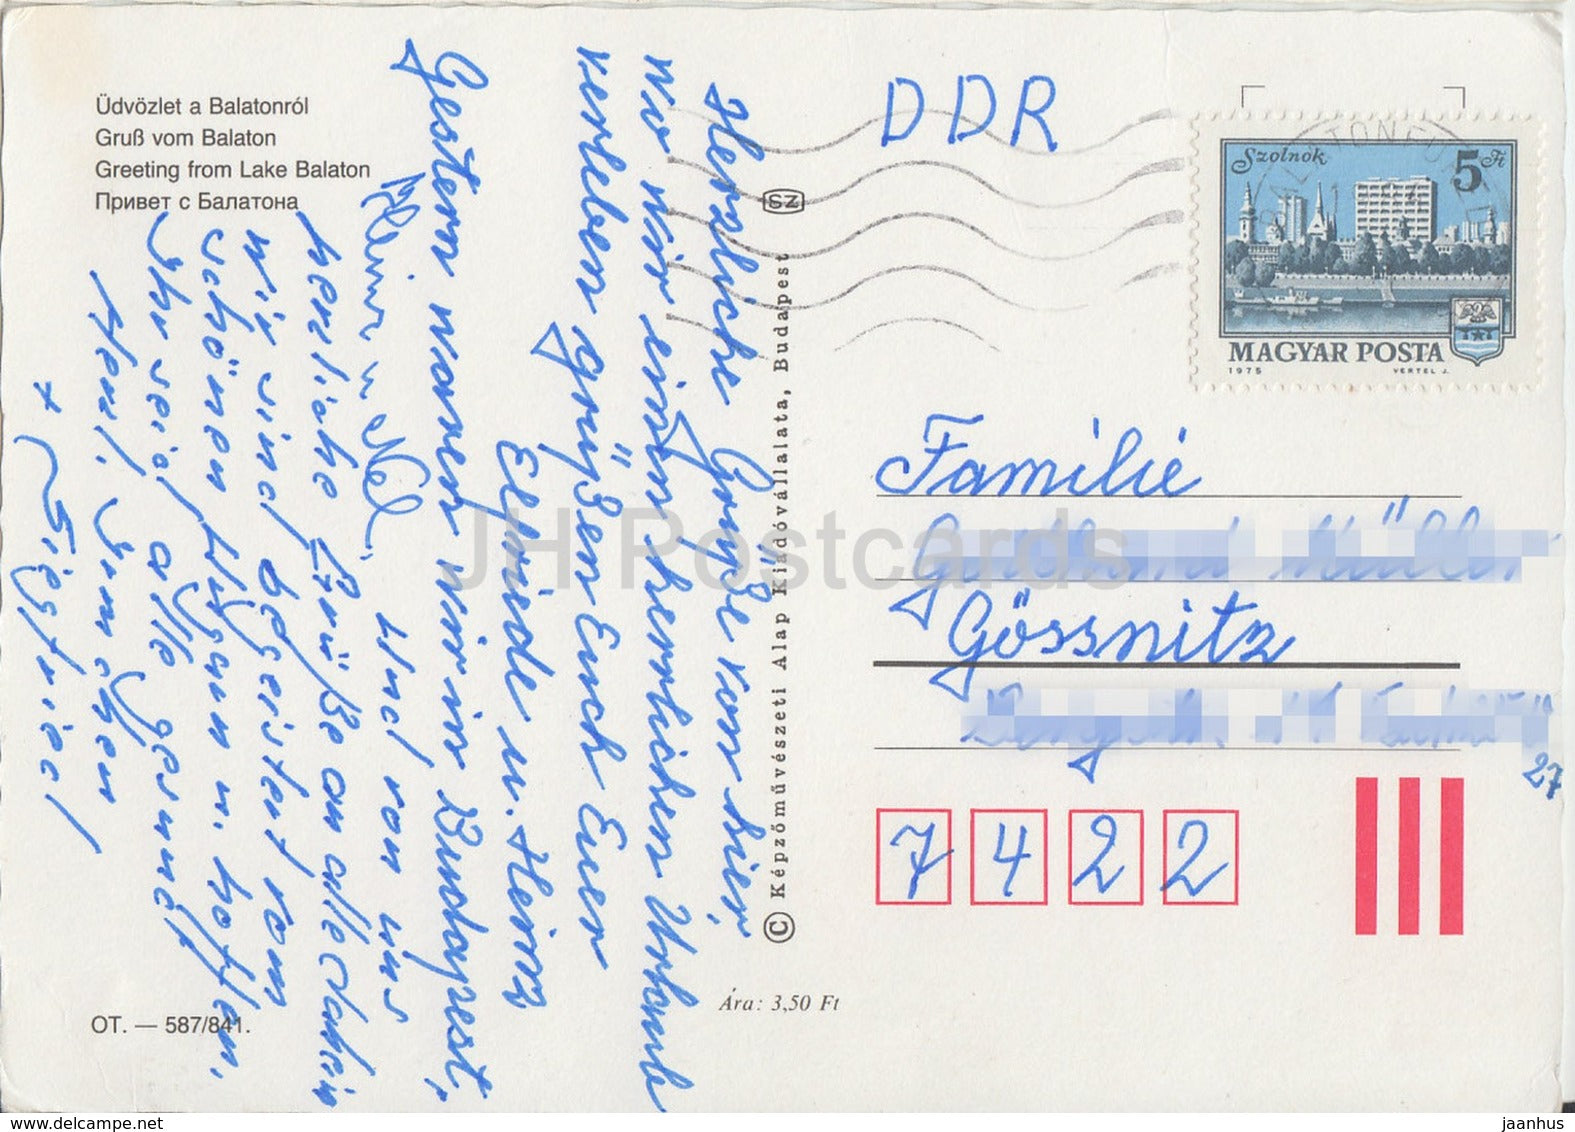 Üdvözlet a Balatonról
Gruß vom Balaton
Greeting from Lake Balaton
Привет с Балатона
Herzliche Grüße von hier,
wo wir einen herrlichen Urlaub
verleben grüßen Euch Eure
Elfriede u. Heinz
Gestern waren wir in Budapest,
Und von uns
herzliche Grüße an alle
wir sind begeistert vom
schönen Ungarn u. hoffen,
Ihr seid alle gesund
Siegfried
SZ
© Képzőművészeti Alap Kiadóvállalata, Budapest
OT. — 587/841.
Ára: 3,50 Ft
DDR
Szolnok 5 Ft
MAGYAR POSTA
1975 VERTEL J.
Familie
Gössnitz
27
7422
JH Postcards
www.delcampe.net
jaanhus